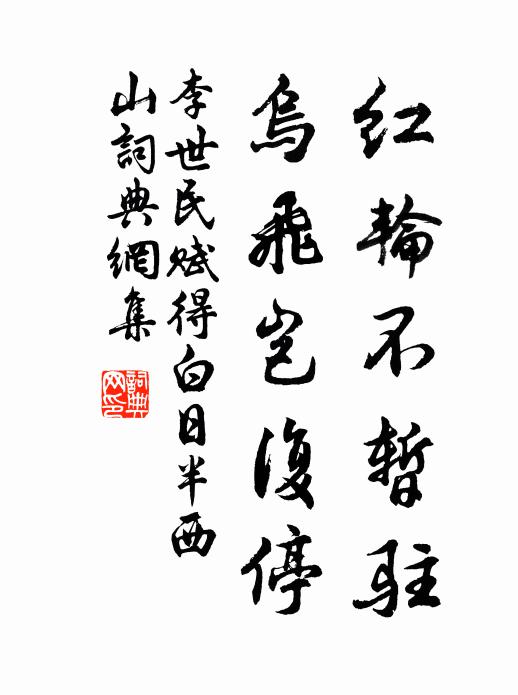 紅輪不暫駐
烏飛豈復停
李世民賦得白日半西
山詞典網集
詞典
网印